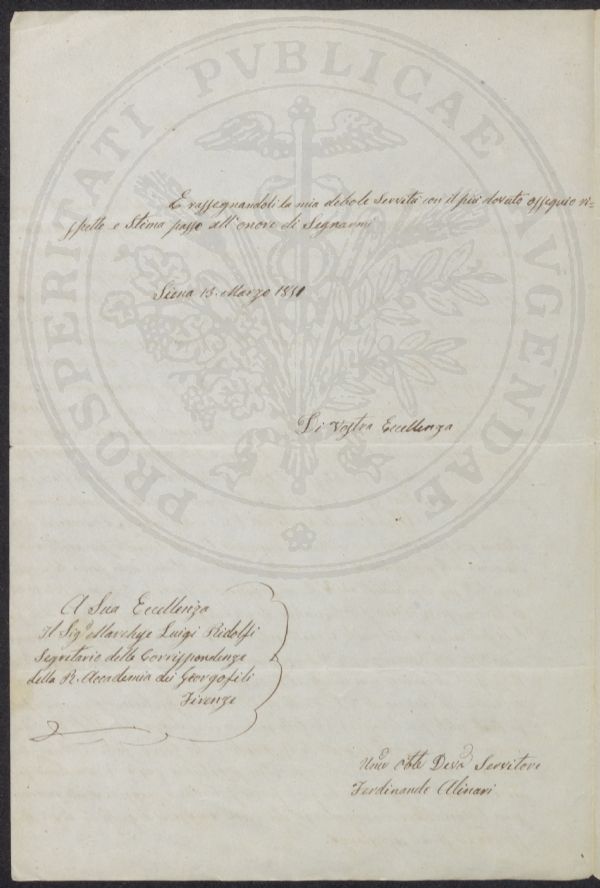 PROSPERITATI PVBLICAE AVGENDAE
E rassegnandoli la mia debole Servitù con il più dovuto ossequio ri=
spetto e Stima passo all'onore di Segnarmi
Siena 13. Marzo
Di Vostra Eccellenza
A Sua Eccellenza
Il Sigr. Marchese Luigi Ridolfi
Segretario delle Corrispondenze
della R. Accademia dei Georgofili
Firenze
Devo Servitore
Ferdinando Alinari